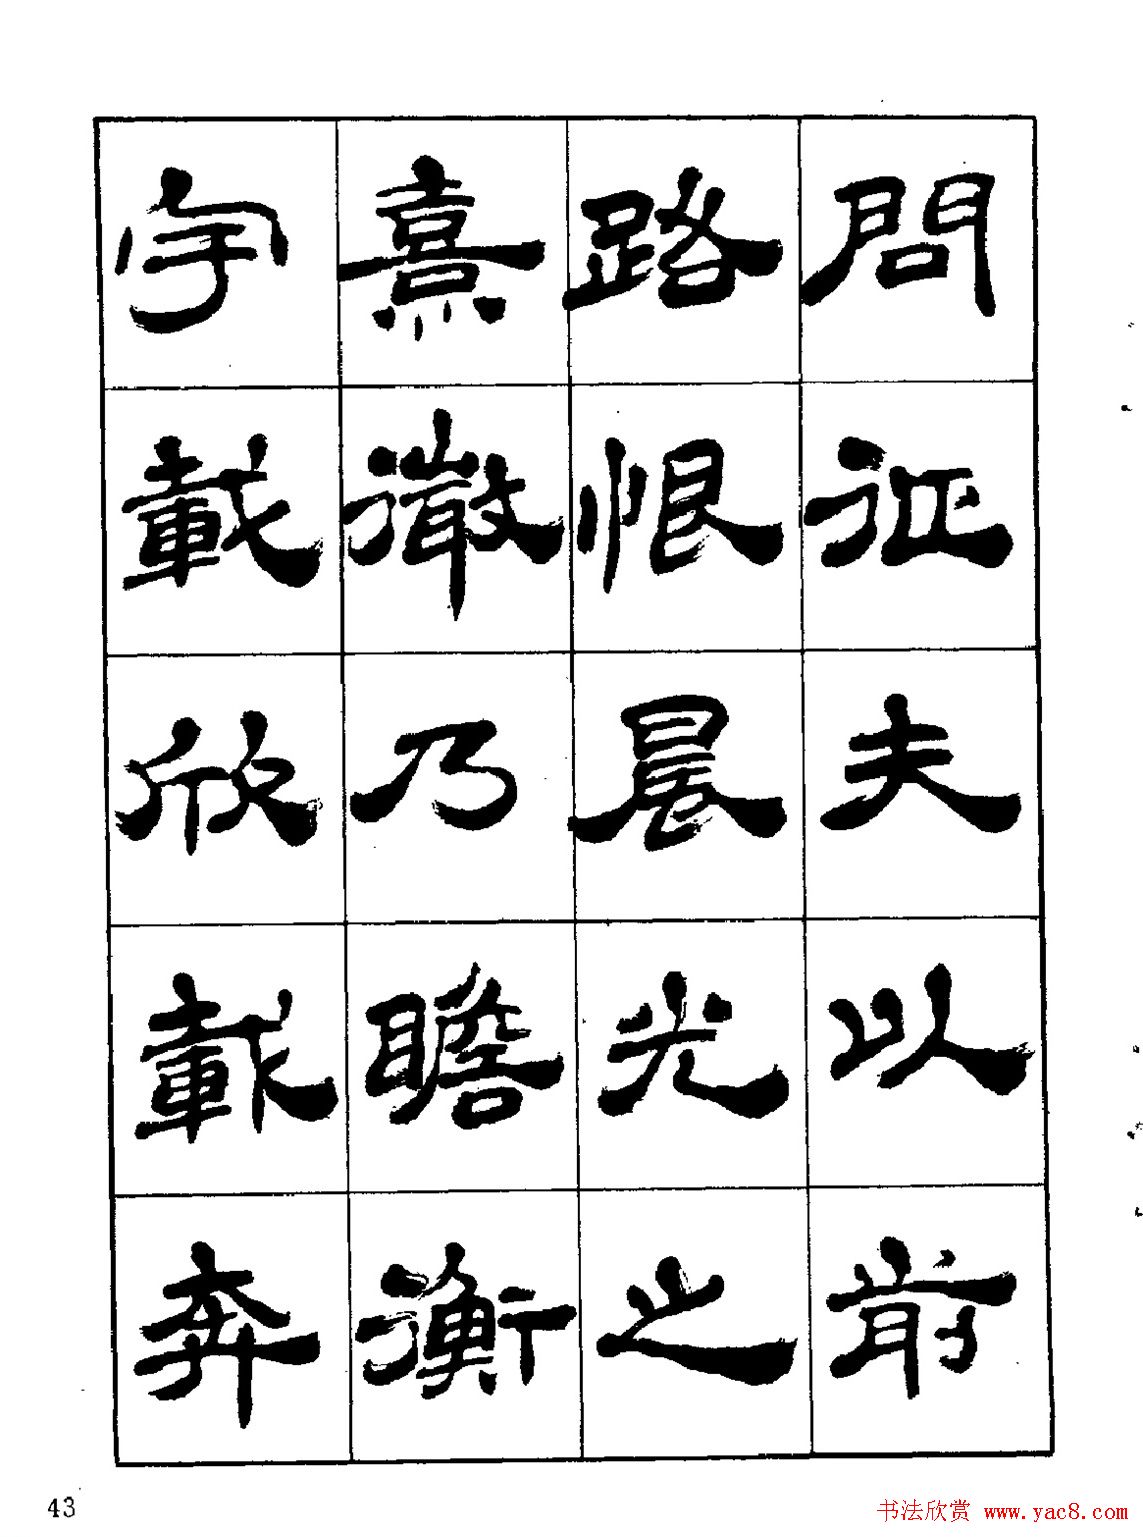 問征夫以前
路恨晨光之
熹微乃瞻衡
宇載欣載奔
43
书法欣赏 www.yac8.com